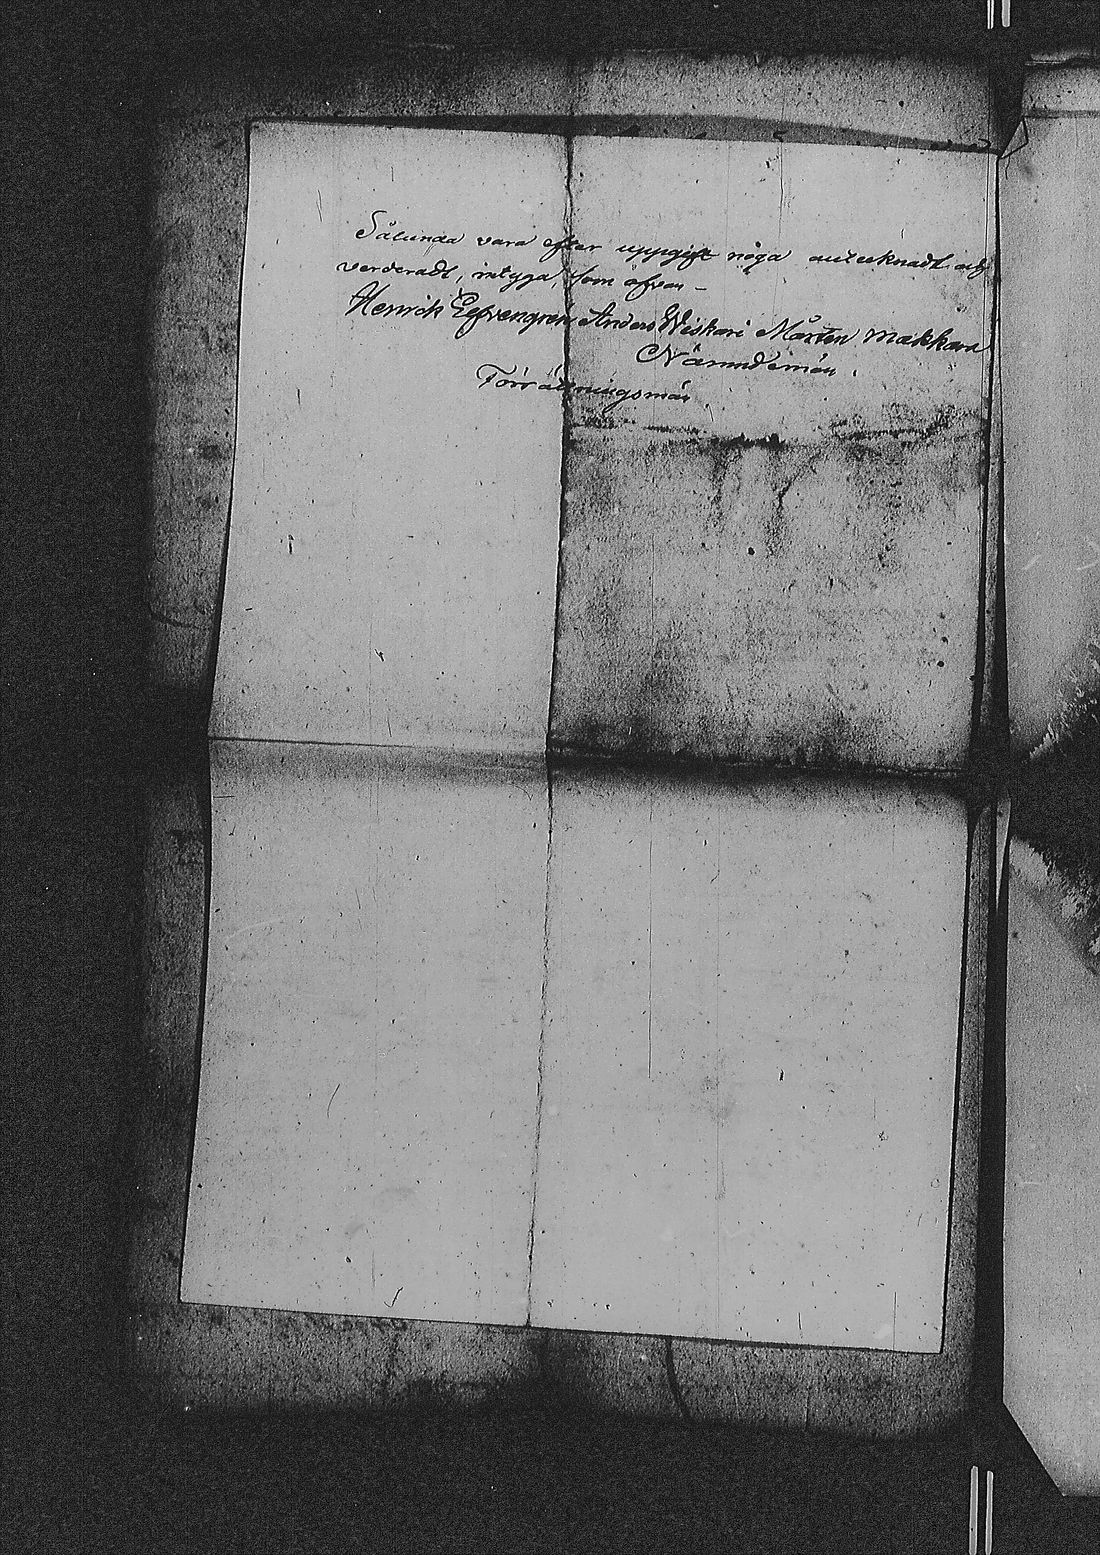 Sålunda vara efter uppgift nöga antecknadt och
verderadt, intyga, som ofvan –
Henrik Anders Weiskari Mårten Makkara
Nämndemän.
Förrättningsmän